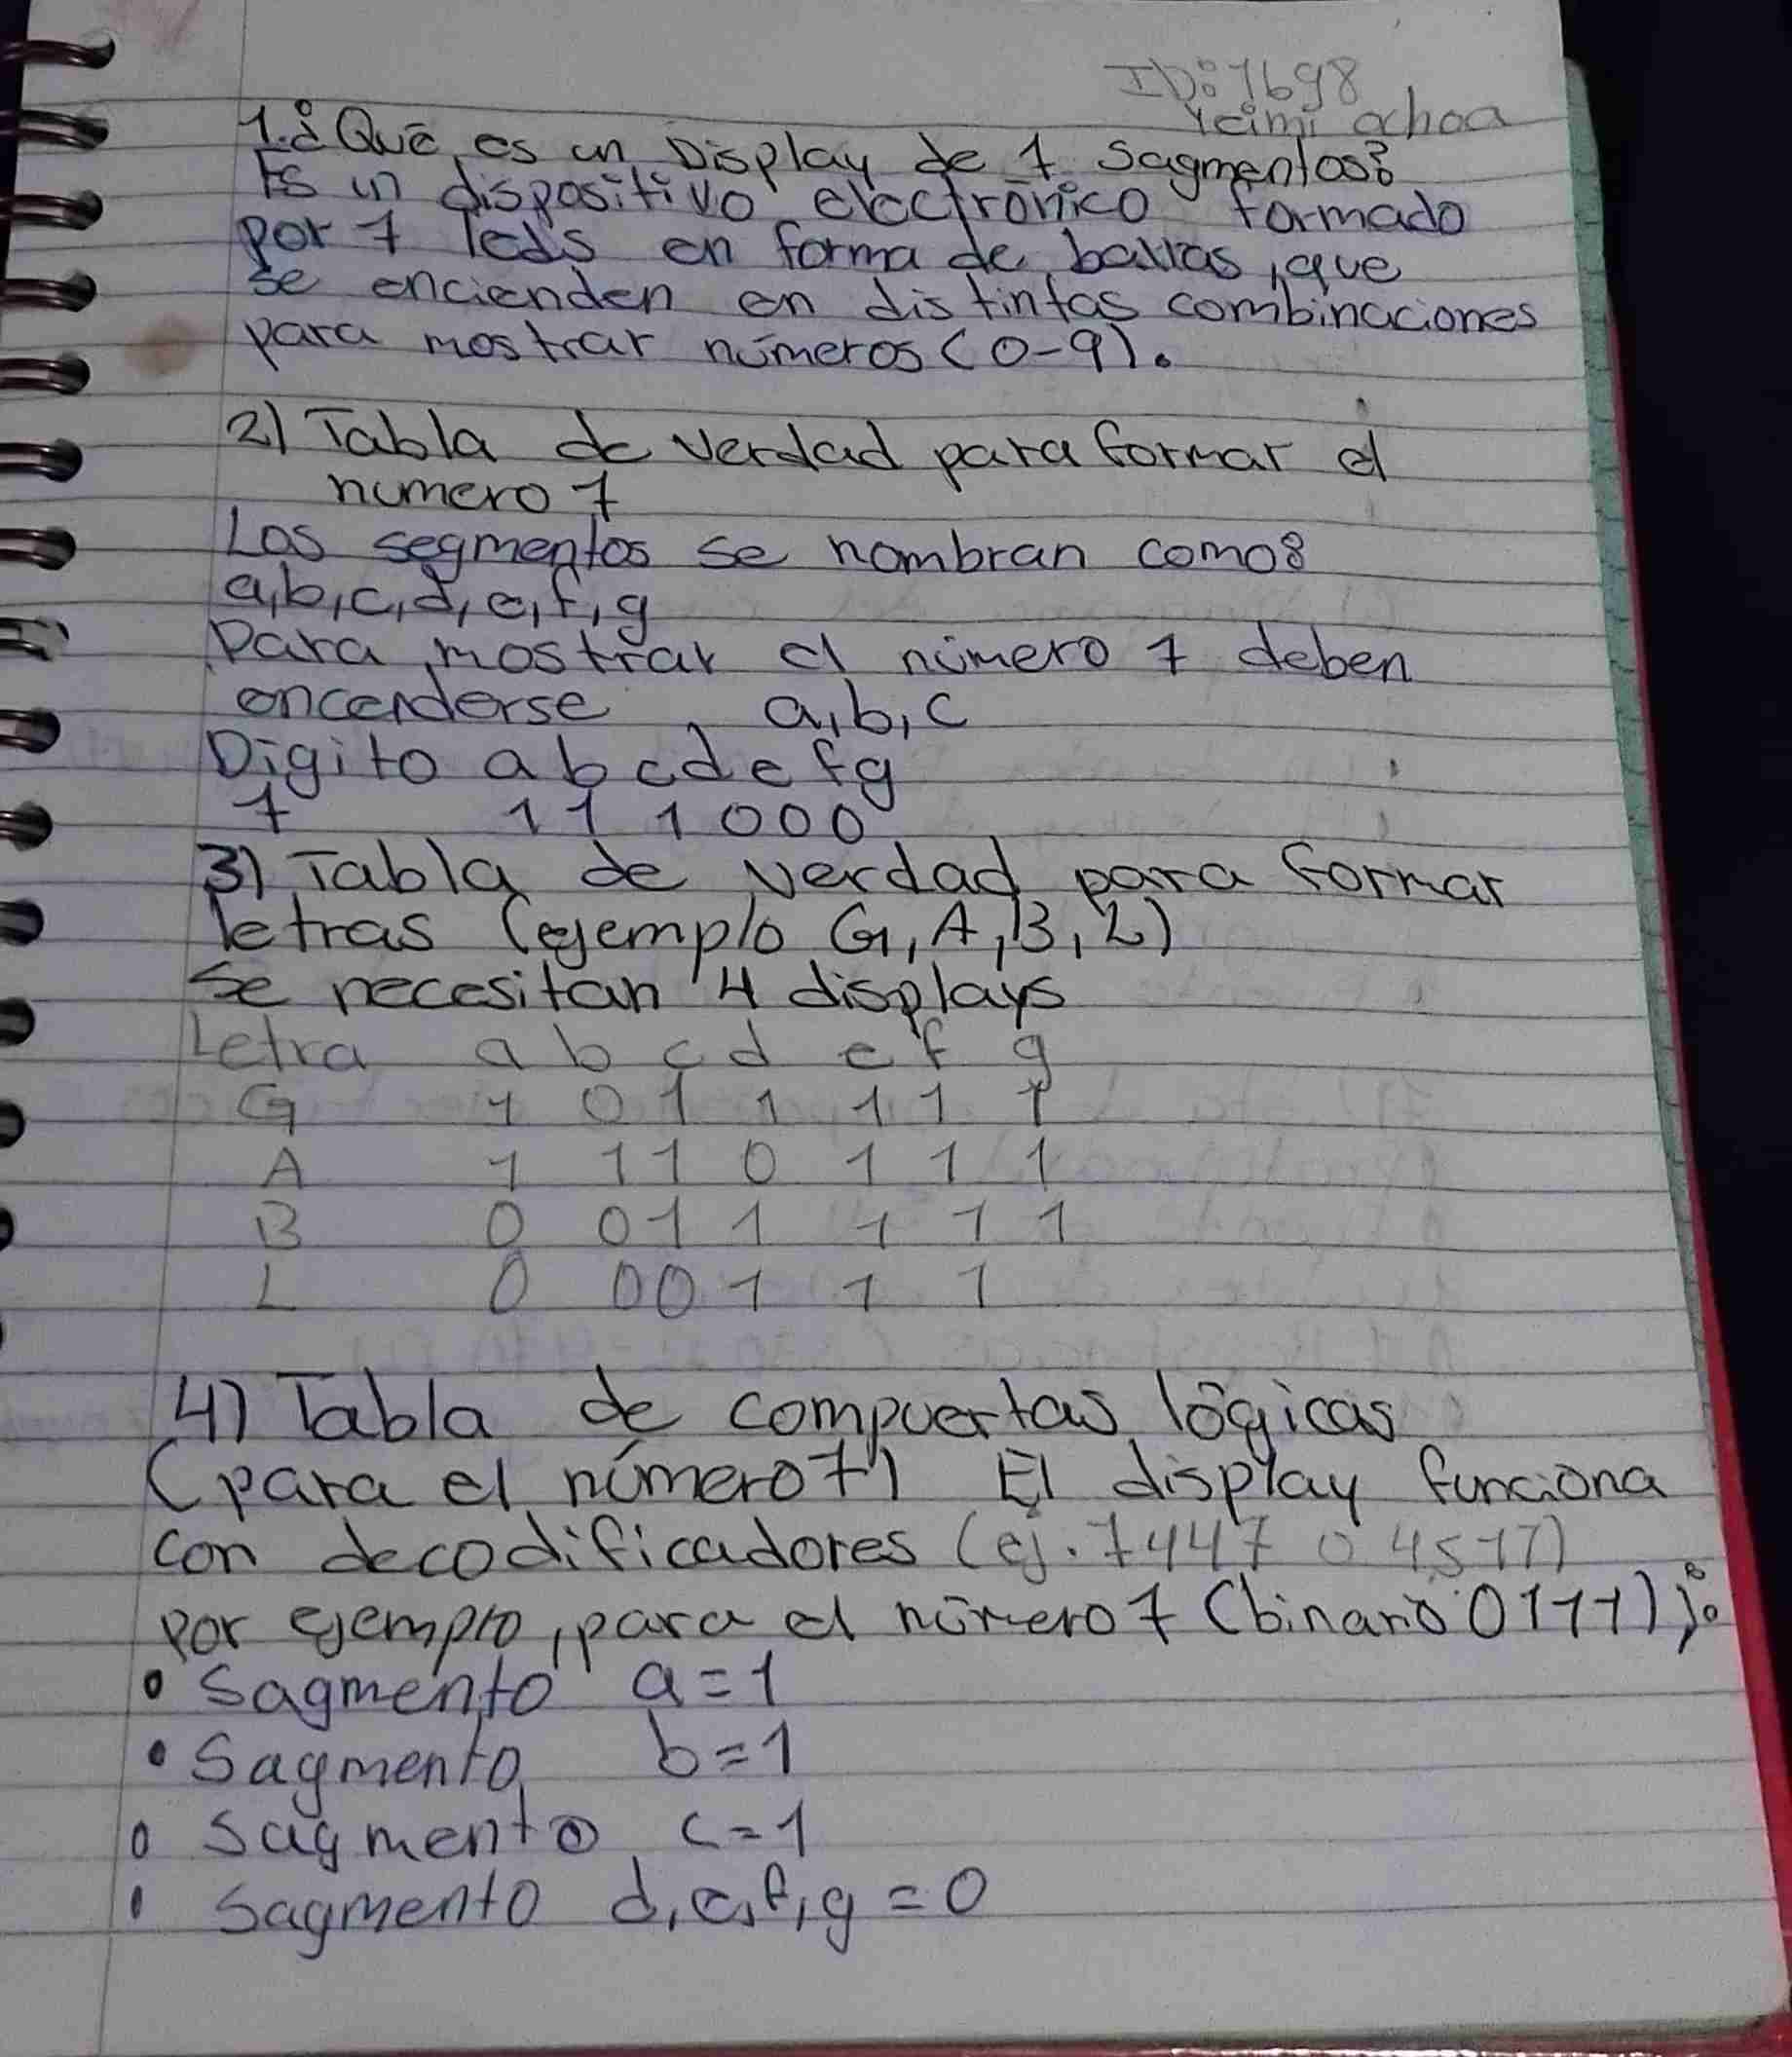 ID: 7698
Yeimi ochoa
1. ¿Que es un Display de 7 sagmentos?
Es un dispositivo electrónico formado
por 7 led's en forma de barras, que
se encienden en distintas combinaciones
para mostrar números (0-9).
2) Tabla de verdad para formar el
numero 7
Los segmentos se nombran como:
a, b, c, d, e, f, g
Para mostrar el número 7 deben
encenderse a, b, c
Digito a b c d e f g
7 1 1 1 0 0 0
3) Tabla de verdad para formar
letras (ejemplo G, A, B, L)
Se necesitan 4 displays
Letra a b c d e f g
G 1 0 1 1 1 1 1
A 1 1 1 0 1 1 1
B 0 0 1 1 1 1 1
L 0 0 0 1 1 1
4) Tabla de compuertas lógicas
(para el número 7) El display funciona
con decodificadores (ej. 7447 o 4511)
por ejemplo, para el número 7 (binario 0111):
• Sagmento a=1
• Sagmento b=1
• Sagmento c=1
• Sagmento d, e, f, g = 0